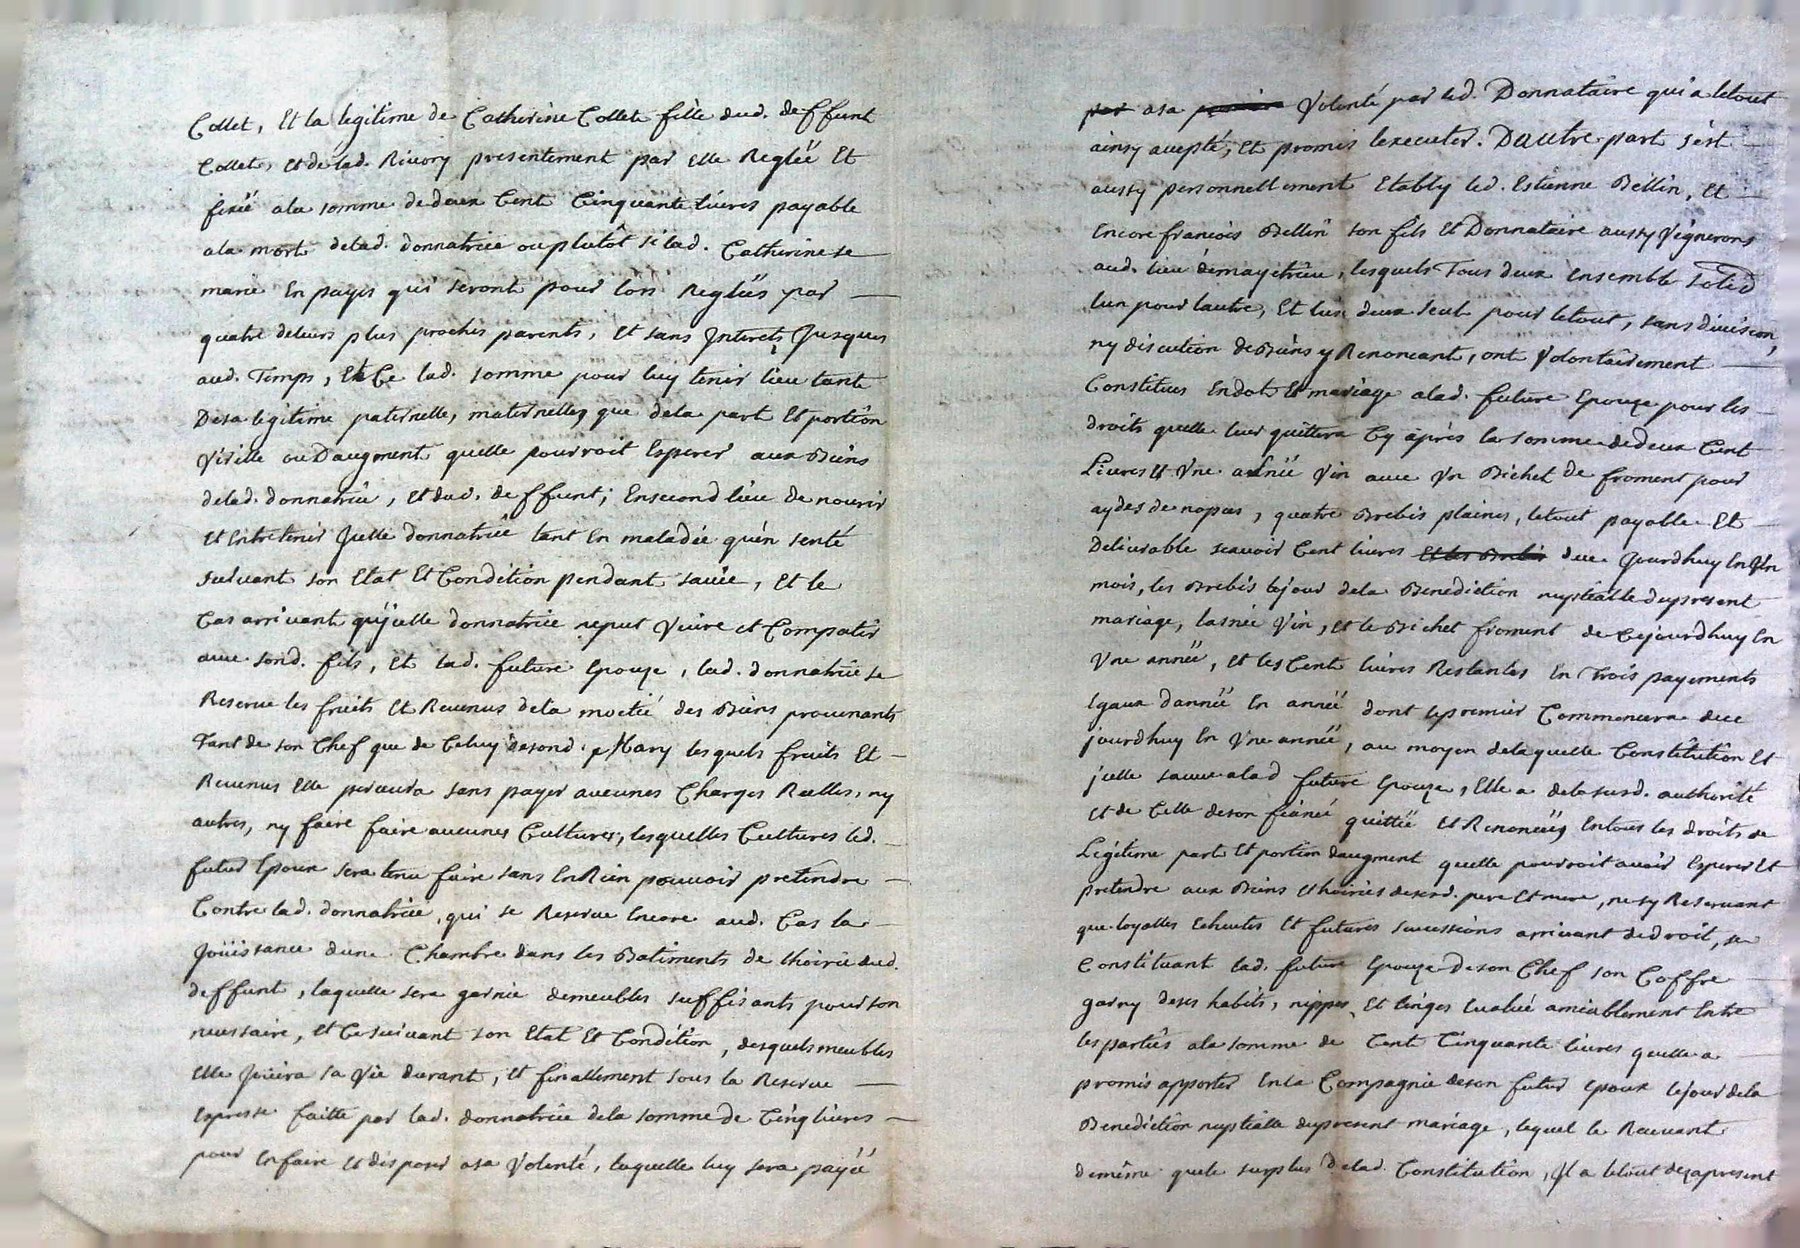 Collet, Et la legitime de Catherine Collet fille dud. deffunt
Collet, et de lad. Rivory presentement par elle Reglée Et
fixéé ala somme de deux Cent Cinquante livres payable
ala mort delad. donnatrice ou plutôt si lad. Catherine se
marie En payes qui seront pour lors Reglées par
quatre deleurs plus proches parents, et sans Interets Jusques
aud. Temps, Et Ce lad. somme pour luy tenir lieu tant
Desa legitime paternelle, maternelle, que dela part Et portion
Virille ou Daugment quelle pourroit Esperer aux Biens
delad. donnatrice, et dud. deffunt; En second lieu de nourir
et Entretenir Jcelle donnatrice tant En maladie quèn senté
suivant son Etat Et Condition pendant savie, Et le
Cas arrivant qu'jcelle donnatrice neput Vivre et Compatir
avec sond. fils, Et lad. future Epouze, lad. donnatrice se
Reserve les fruits Et Revenus dela moetié des Biens provenants
Tant de son Chef que de Celuy desond. Mary lesquels fruits Et
Revenus Elle percevra sans payer aucunes Charges Reelles, ny
autres, ny faire faire aucunes Cultures, lesquelles Cultures led.
futur Epoux sera tenu faire sans En Rien pouvoir pretendre
Contre lad. donnatrice, qui se Reserve Encore aud. Cas la
Joüissance dune Chambre dans les Batiments de lhoirie dud.
deffunt, laquelle sera garnie demeubles suffisants pour son
necessaire, et Ce suivant son Etat Et Condition, desquels meubles
Elle Joüira sa Vie durant, et finallement sous la Reserve
Expresse faitte par lad. donnatrice dela somme de Cinq livres
pour En faire Et disposer asa Volonté, laquelle luy sera payéé
par asa Volonté par led. Donnataire qui a letout
ainsy accepté, Et promis lexecuter. Dautre part sest
aussy personnellement Etably led. Estienne Bellin, Et
Encore francois Bellin son fils Et Donnataire aussy Vignerons
aud. lieu lesquels Tous deux Ensemble solid
lun pour lautre, Et lun deux seul pour letout, sans division,
ny discution de Biens y Renoncant, ont Volontairement
Constitues En dot Et mariage alad. future Epouze pour les
droits quelle leur quittera Cy après la somme de deux Cent
Livres Et Vne asnéé Vin avec Vn Bichet de froment pour
aydes de nopces, quatre Brebis plaines, letout payable Et
Delivrable scavoir Cent livres Et les Brebis duce Jourdhuy En Vn
mois, les Brebis lejour dela Benediction nuptialle dupresent
mariage, lasnée Vin, et le Bichet froment de Cejourdhuy En
Vne annéé, Et les Cent livres Restantes En Trois payements
Egaux dannéé En annéé dont lepremier Commencera duce
jourdhuy En Vne annéé, au moyen delaquelle Constitution Et
jcelle sauve alad future Epouze, Elle a delasusd. authorité
et de Celle deson fiancé quittéé Et Renoncéé, Entous les droits de
Legitime part Et portion daugment quelle pourroit avoir Esperer Et
pretendre aux Biens Et hoiries desesd. pere Et mere, nesy Reservant
que loyalles Echeutes Et futures successions arrivant de droit, se
Constituant lad. future Epouze Deson Chef son Coffre
garny deses habits, nippes, Et linges Evalué amiablement Entre
les parties ala somme de Cent Cinquante livres quelle a
promis apporter En la Compagnie deson futur Epoux lejour dela
Benediction nuptialle dupresent mariage, lequel le Recevant
demême que le surplus delad. Constitution, Jl a letout desapresent